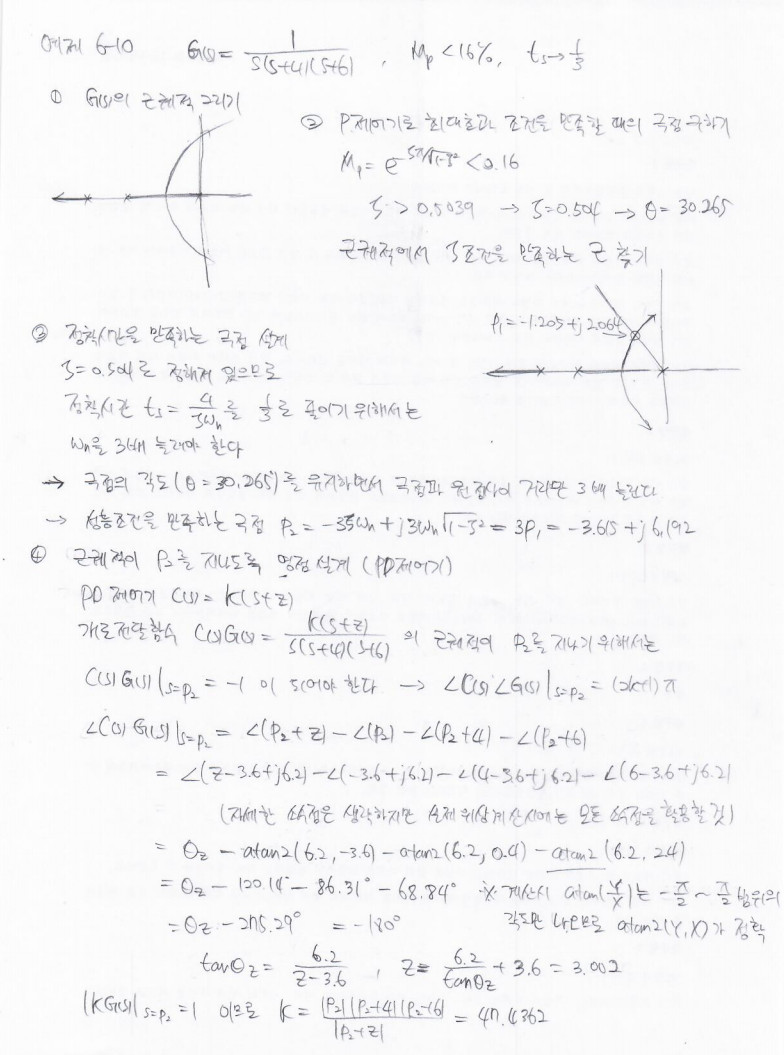 예제 6-10 G(s) = 1 / s(s+4)(s+6) , Mp < 16%, ts → 1/3
① G(s)의 근궤적 그리기
② P제어기로 최대초과 조건을 만족할 때의 극점 구하기
Mp = e^ζπ/√1-ζ² < 0.16
ζ > 0.5039 → ζ=0.504 → θ = 30.265
근궤적에서 ζ조건을 만족하는 근 찾기
P₁ = -1.205+j2.064
③ 정착시간을 만족하는 극점 설계
ζ = 0.504로 정해져 있으므로
정착시간 ts = 4/ζWn 를 1/3로 줄이기 위해서는
Wn을 3배 늘려야 한다
→ 극점의 각도(θ = 30.265°)를 유지하면서 극점과 원점사이 거리만 3배 늘린다
→ 성능조건을 만족하는 극점 P₂ = -3ζWn + j3Wn√1-ζ² = 3P₁ = -3.615 + j6.192
④ 근궤적이 P₂를 지나도록 영점 설계 (PD제어기)
PD 제어기 C(s) = K(s+z)
개로전달함수 C(s)G(s) = K(s+z) / s(s+4)(s+6) 의 근궤적이 P₂를 지나기 위해서는
C(s)G(s)|s=p₂ = -1 이 되어야 한다 → ∠C(s)∠G(s)|s=p₂ = (2k+1)π
∠C(s)G(s)|s=p₂ = ∠(P₂+z) - ∠(P₂) - ∠(P₂+4) - ∠(P₂+6)
= ∠(z-3.6+j6.2) - ∠(-3.6+j6.2) - ∠(4-3.6+j6.2) - ∠(6-3.6+j6.2)
(자세한 소수점은 생략하지만 실제 위상계산시에는 모든 소수점을 활용할 것)
= θz - atan2(6.2, -3.6) - atan2(6.2, 0.4) - atan2(6.2, 2.4)
= θz - 120.14° - 86.31° - 68.84° ※ 계산시 atan(Y/X)는 -π/2 ~ π/2 범위의
= θz - 275.29° = -180° 각도만 나오므로 atan2(Y,X)가 정확
tanθz = 6.2 / z-3.6 , z = 6.2 / tanθz + 3.6 = 3.002
|KG(s)|s=p₂ = 1 이므로 K = |P₂||P₂+4||P₂+6| / |P₂+z| = 47.4362